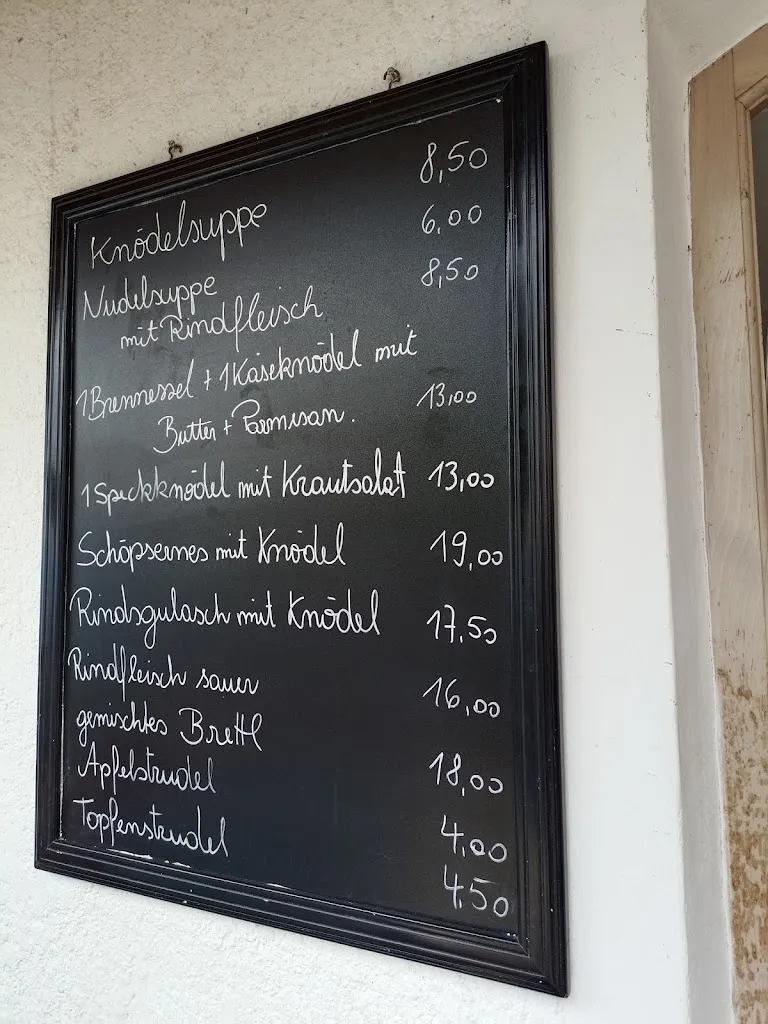 Knödelsuppe 8,50
Nudelsuppe 6,00
mit Rindfleisch 8,50
1 Brennessel + 1 Käseknödel mit
Butter + Parmesan. 13,00
1 Speckknödel mit Krautsalat 13,00
Schöpsernes mit Knödel 19,00
Rindsgulasch mit Knödel 17,50
Rindfleisch sauer 16,00
gemischtes Brettl 18,00
Apfelstrudel 4,00
Topfenstrudel 4,50